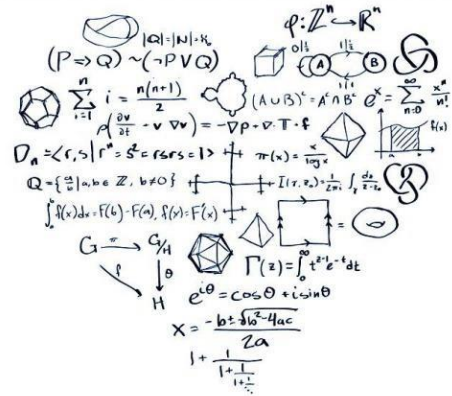 |Q|=|N|=ℵ₀
φ:ℤⁿ↪ℝⁿ
(P⇒Q)~(¬P∨Q)
A B
∑ᵢ₌₁ⁿ i = n(n+1)/2
(A∪B)ᶜ=Aᶜ∩Bᶜ
eˣ=∑ₙ₌₀^∞ xⁿ/n!
ρ(∂v/∂t + v·∇v) = -∇p+∇·T+f
f(x)
a
Dₙ=<r,s|rⁿ=s²=rsrs=1>
π(x)=x/log x
Q={a/b|a,b∈ℤ, b≠0}
∫ₐᵇf(x)dx=F(b)-F(a), f(x)=F'(x)
=
G π G/H
f θ
H
Γ(z)=∫₀^∞ t^(z-1)e^(-t)dt
e^(iθ)=cosθ+isinθ
x=(-b±√(b²-4ac))/2a
1+1/(1+1/(1+1/(1+⋱)))